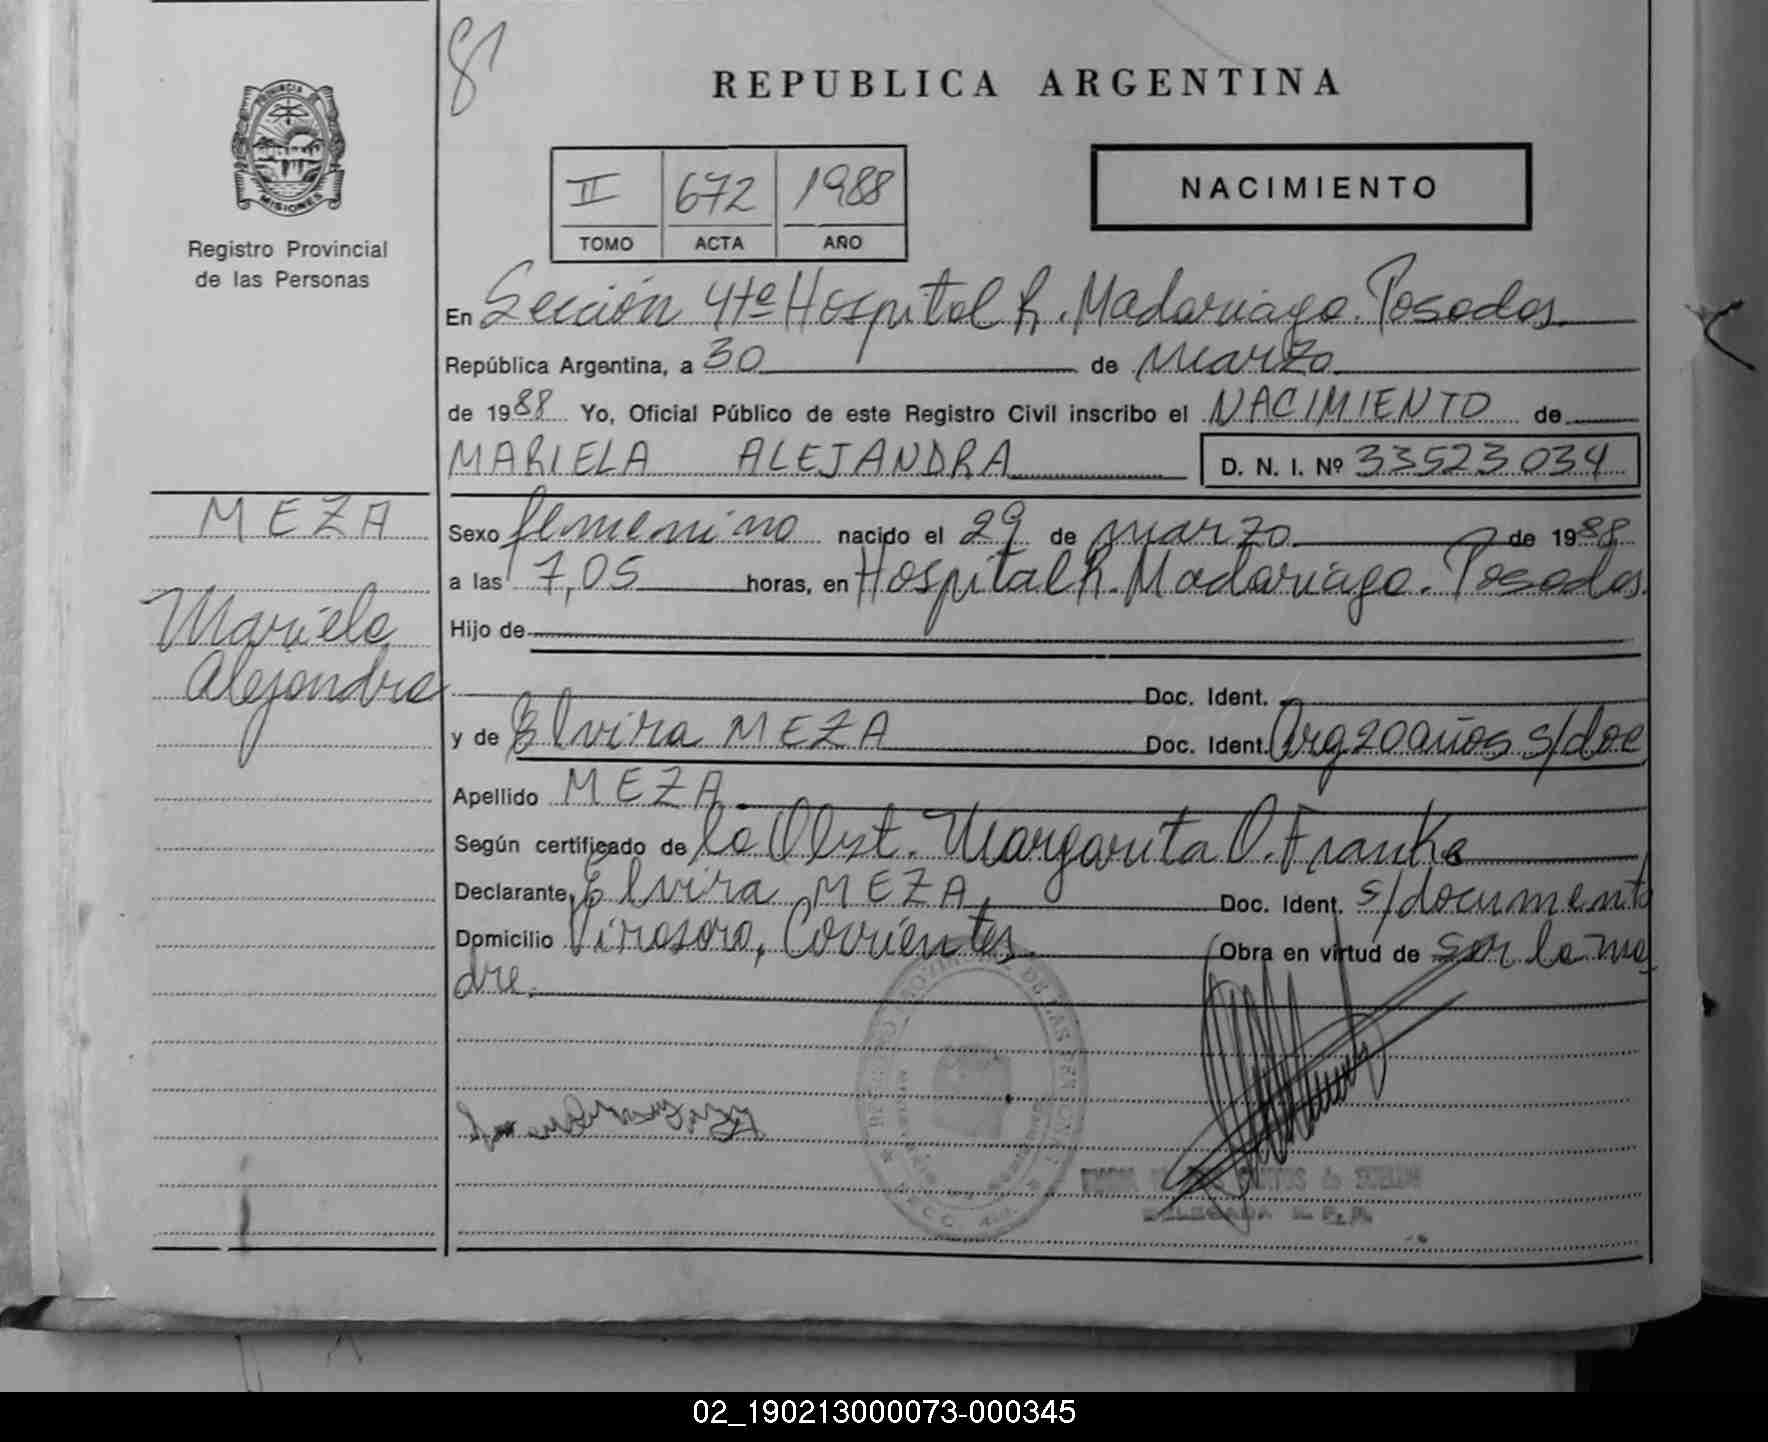 81
REPUBLICA ARGENTINA
PROVINCIA DE
MISIONES
Registro Provincial
de las Personas
II 672 1988
TOMO ACTA AÑO
NACIMIENTO
En Sección 4ta Hospital R. Madariaga. Posadas
República Argentina, a 30 de marzo
de 1988 Yo, Oficial Público de este Registro Civil inscribo el NACIMIENTO de
MARIELA ALEJANDRA D. N. I. Nº 33523034
MEZA
Mariela
Alejandra
Sexo femenino nacido el 29 de marzo de 1988
a las 7,05 horas, en Hospital R. Madariaga. Posadas.
Hijo de
Doc. Ident.
y de Elvira MEZA Doc. Ident. Arg 20 años s/doc
Apellido MEZA.
Según certificado de la Obst. Margarita O. Franke
Declarante Elvira MEZA, Doc. Ident. s/documento
Domicilio Virasoro, Corrientes. Obra en virtud de ser la ma
dre.
DELEGADA R. P. P.
02_190213000073-000345